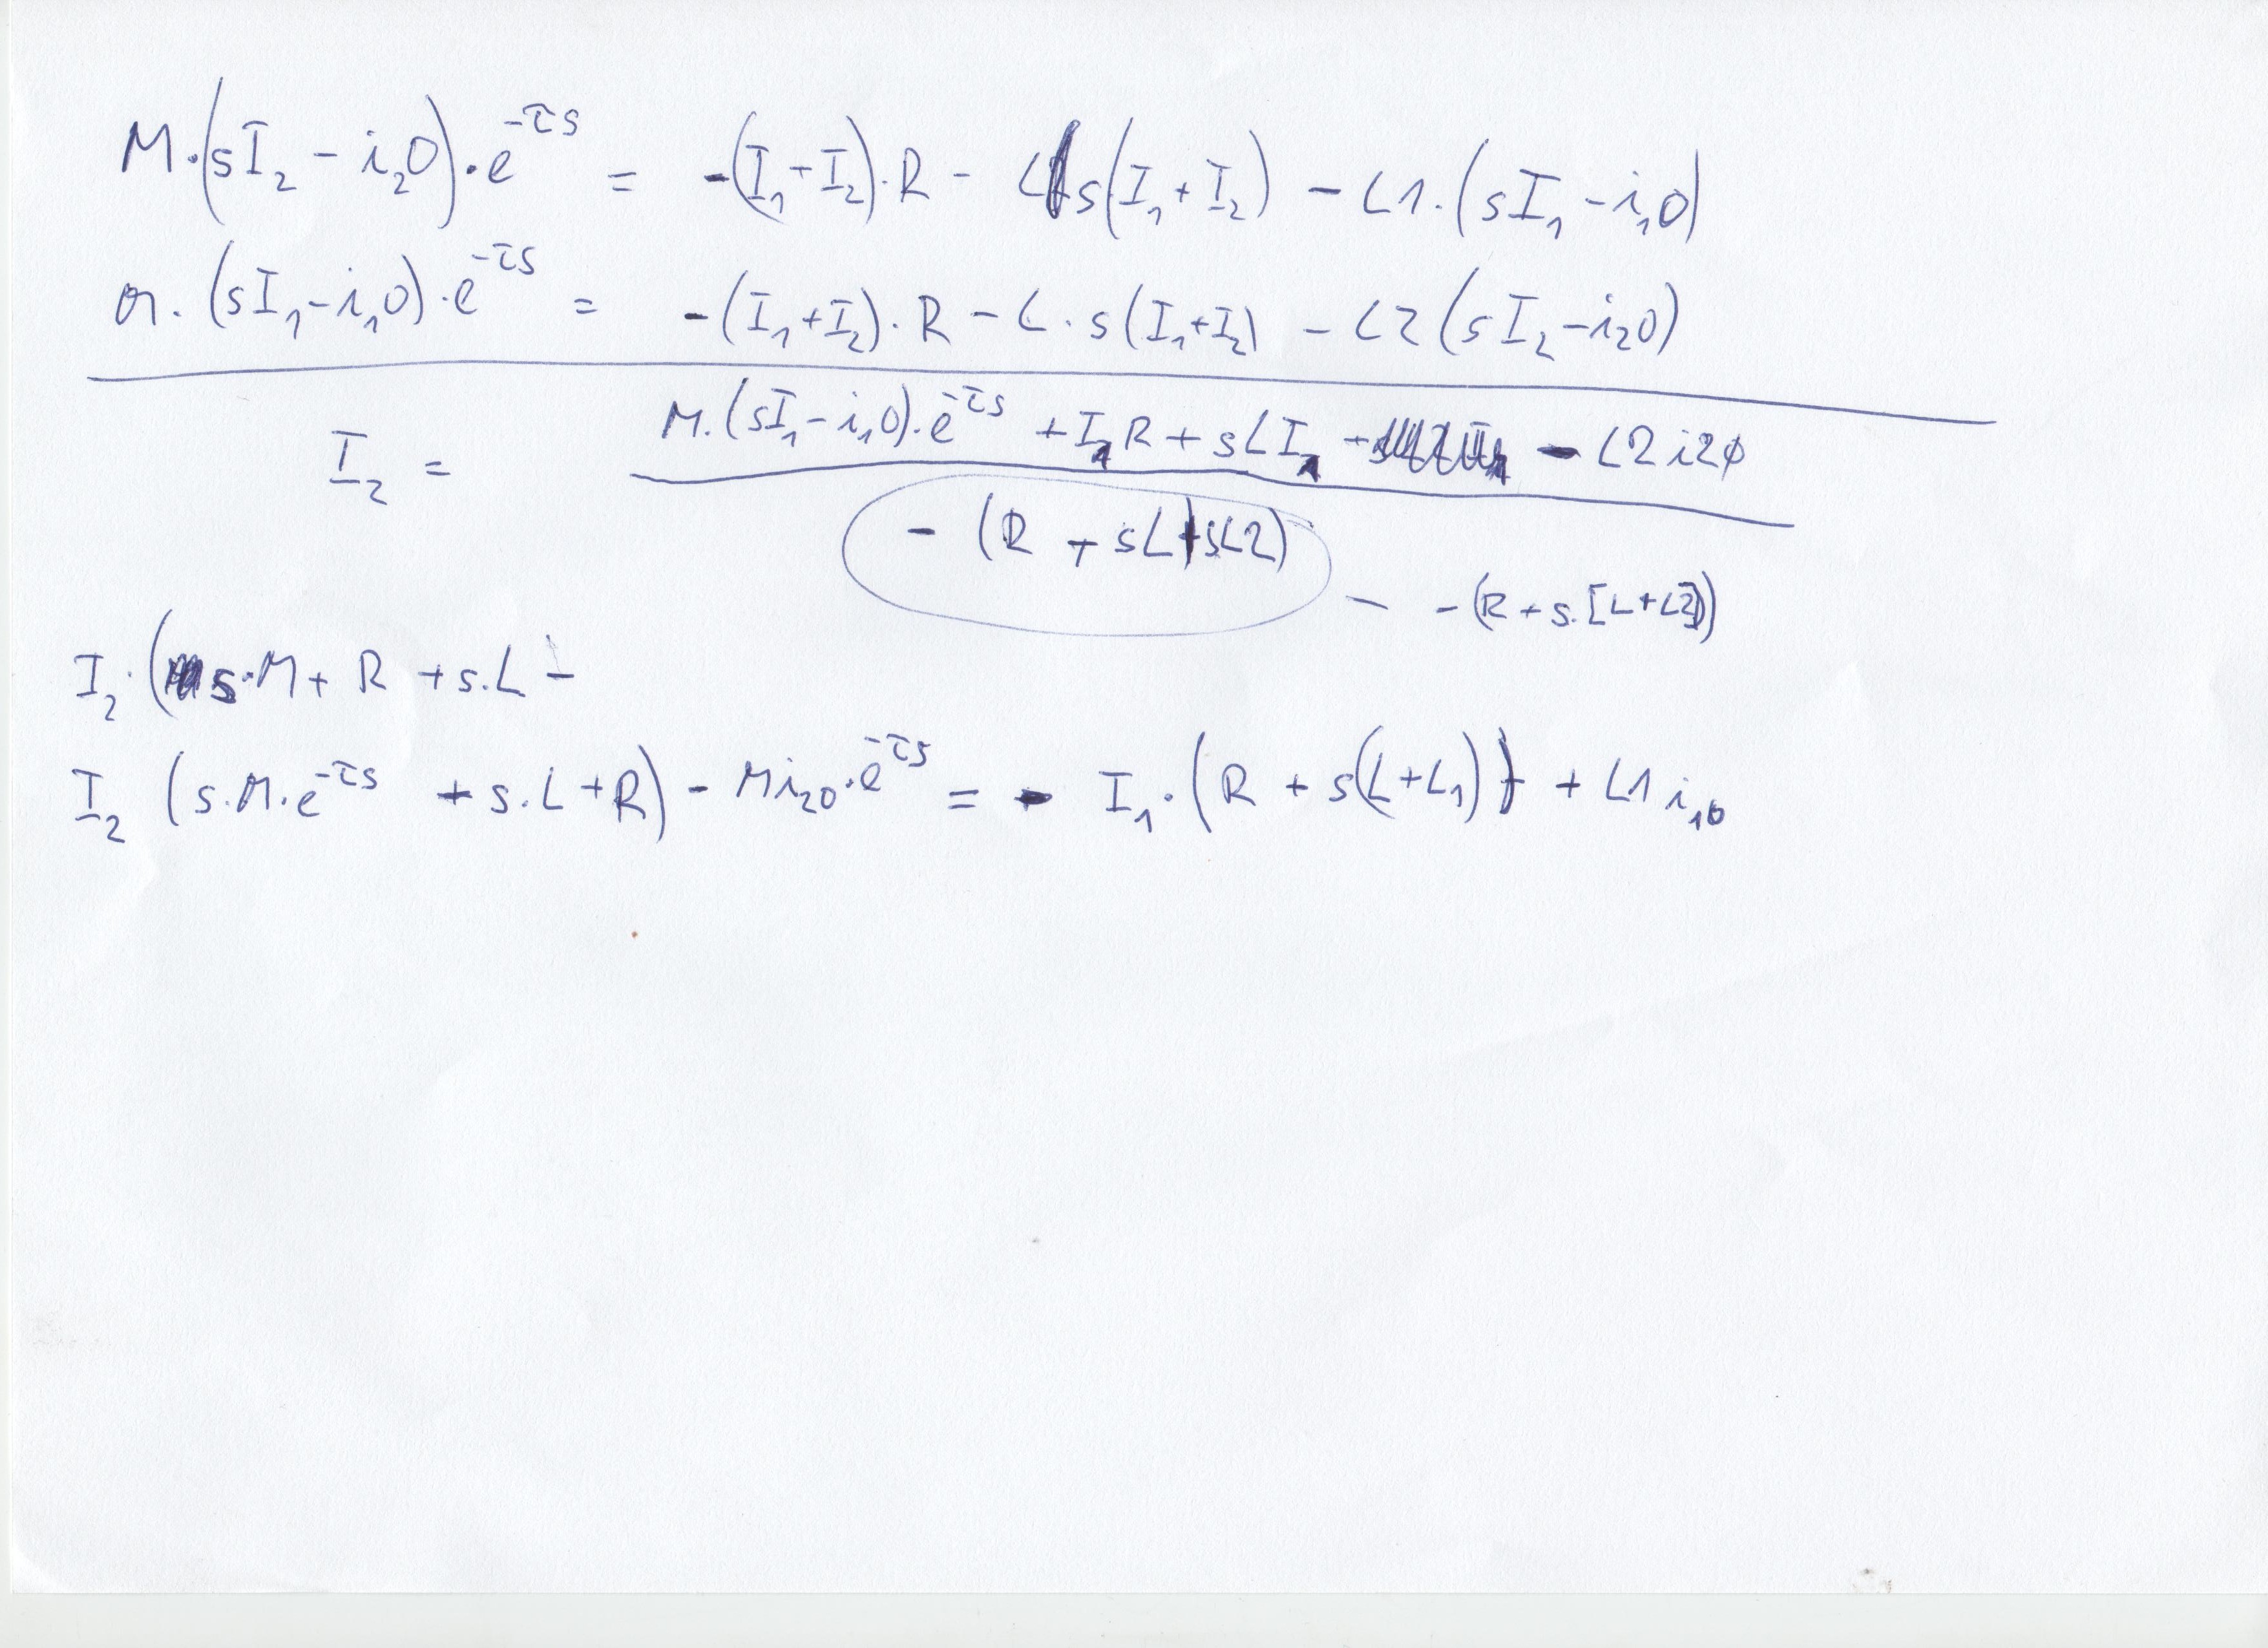 M·(sI₂ - i₂0)·e^-τs = -(I₁+I₂)·R - L s(I₁+I₂) - L1·(sI₁ - i₁0)
M·(sI₁-i₁0)·e^-τs = -(I₁+I₂)·R - L·s(I₁+I₂) - L2(sI₂-i₂0)
M·(sI₁-i₁0)·e^-τs + I₁R + sLI₁ - L2i20
I₂ =
-(R + sL+sL2)
- -(R+s·[L+L2])
I₂·(s·M+ R +s·L -
I₂ (s·M·e^-τs + s·L+R) - Mi₂₀·e^-τs = - I₁·(R + s(L+L₁)) + L1i₁₀